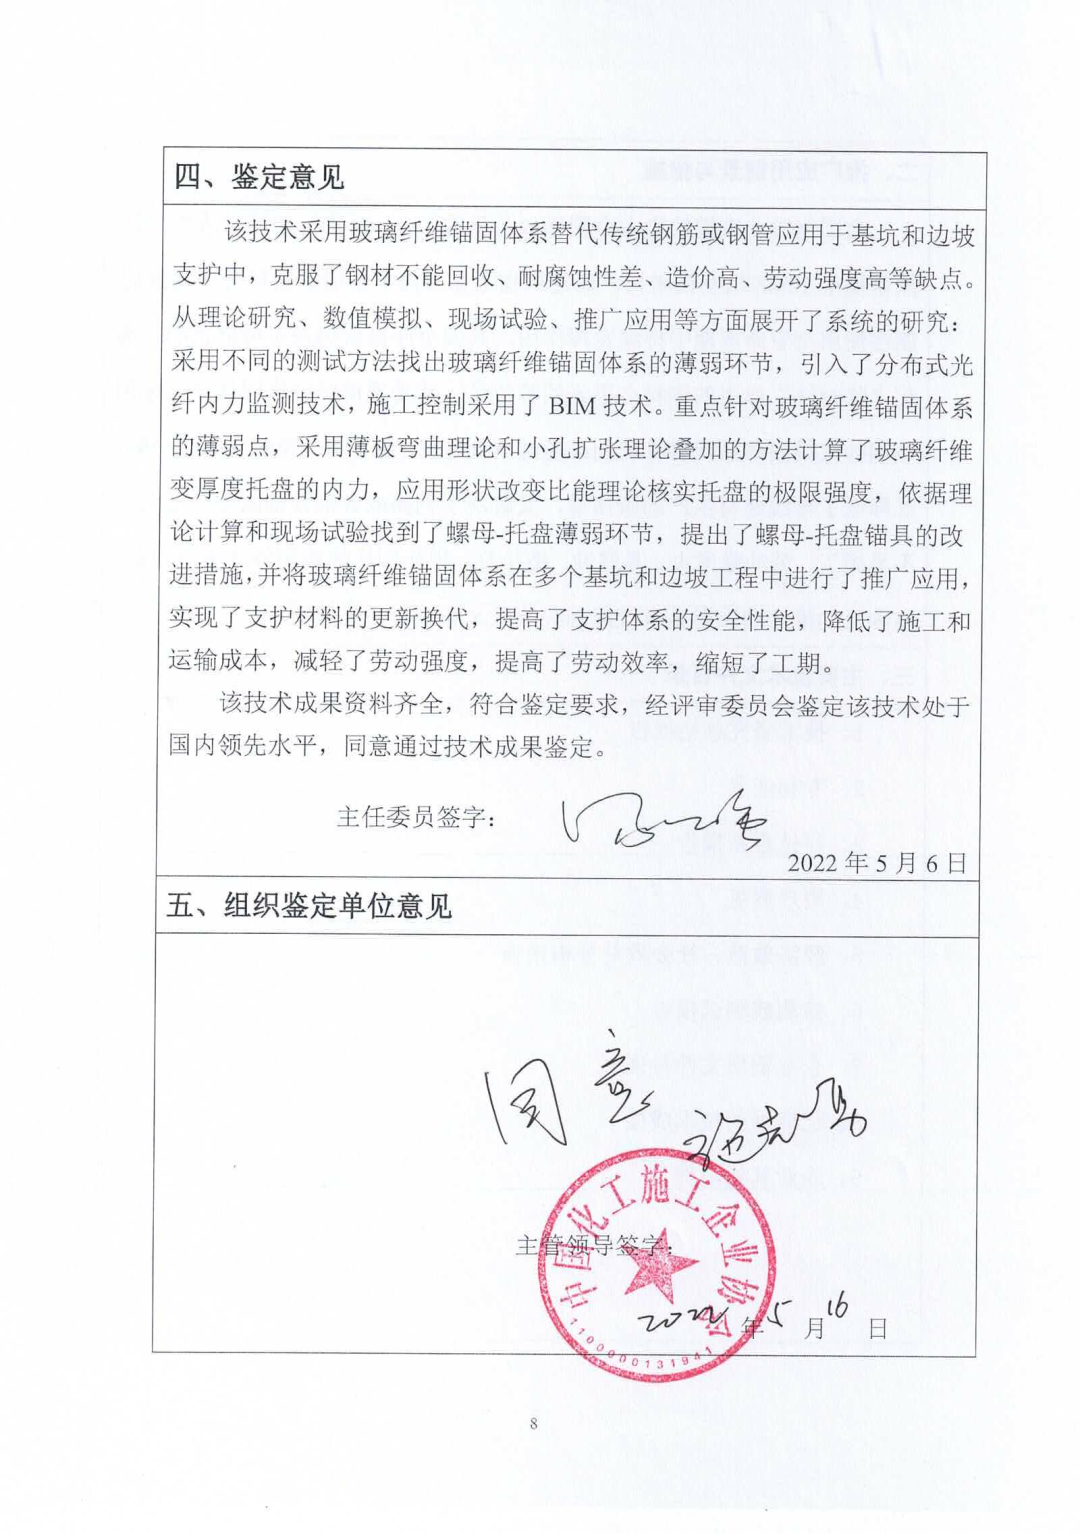 四、鉴定意见
该技术采用玻璃纤维锚固体系替代传统钢筋或钢管应用于基坑和边坡
支护中，克服了钢材不能回收、耐腐蚀性差、造价高、劳动强度高等缺点。
从理论研究、数值模拟、现场试验、推广应用等方面展开了系统的研究：
采用不同的测试方法找出玻璃纤维锚固体系的薄弱环节，引入了分布式光
纤内力监测技术，施工控制采用了 BIM 技术。重点针对玻璃纤维锚固体系
的薄弱点，采用薄板弯曲理论和小孔扩张理论叠加的方法计算了玻璃纤维
变厚度托盘的内力，应用形状改变比能理论核实托盘的极限强度，依据理
论计算和现场试验找到了螺母-托盘薄弱环节，提出了螺母-托盘锚具的改
进措施，并将玻璃纤维锚固体系在多个基坑和边坡工程中进行了推广应用，
实现了支护材料的更新换代，提高了支护体系的安全性能，降低了施工和
运输成本，减轻了劳动强度，提高了劳动效率，缩短了工期。
该技术成果资料齐全，符合鉴定要求，经评审委员会鉴定该技术处于
国内领先水平，同意通过技术成果鉴定。
主任委员签字：
2022 年 5 月 6 日
五、组织鉴定单位意见
同意
中国化工施工企业协会
主管领导签字：
2022 年 5 月 16 日
1100000131941
8